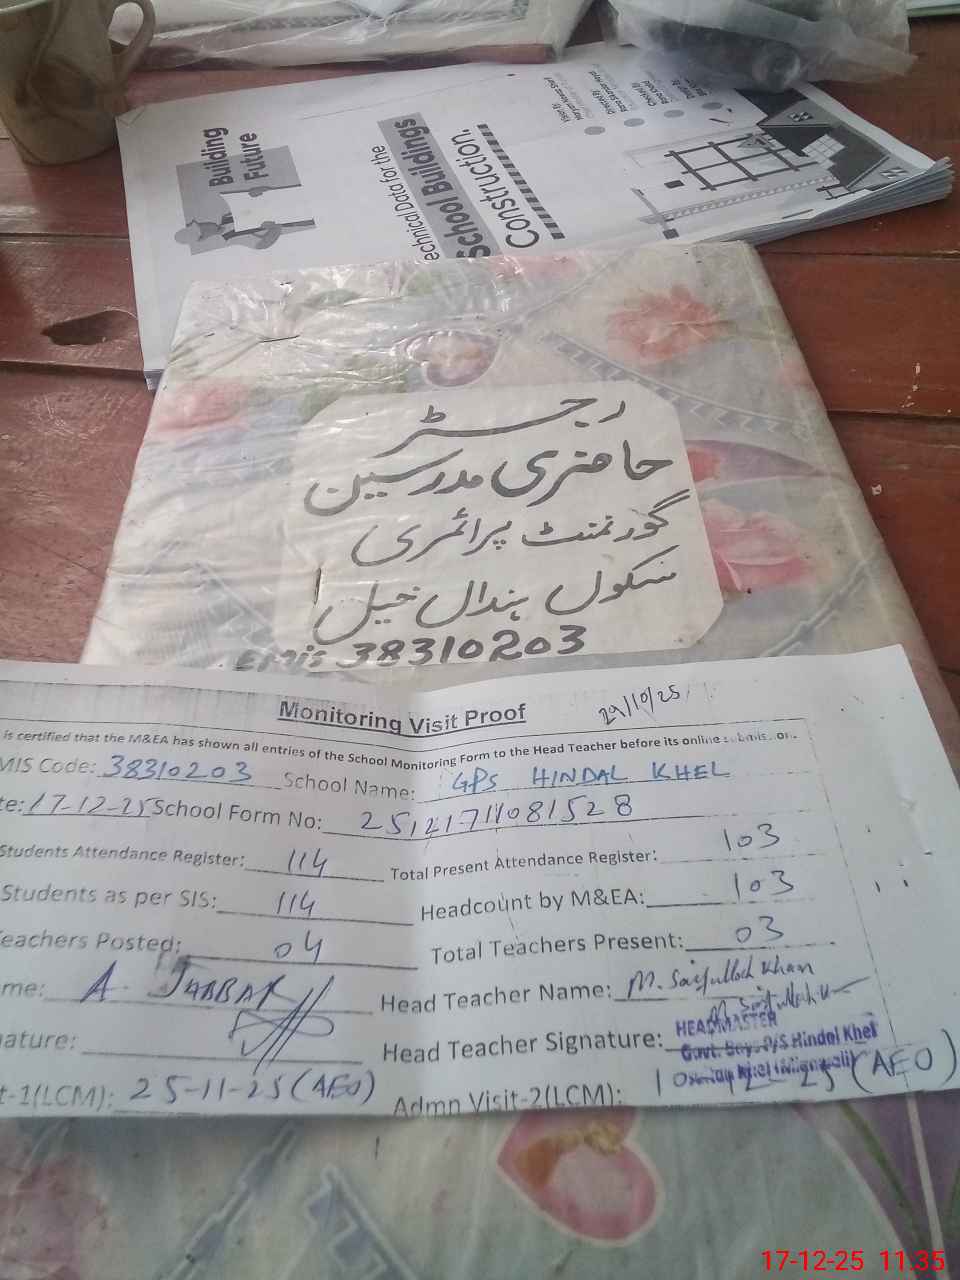 Building
Future
echnical Data for the
School Buildings
Construction.
Vision By:
Checked By
رجسٹر
حاضری مدرسین
گورنمنٹ پرائمری
سکول ہندال خیل
EMIS 38310203
Monitoring Visit Proof
29/10/25
is certified that the M&EA has shown all entries of the School Monitoring Form to the Head Teacher before its online submission.
MIS Code: 38310203 School Name: GPS HINDAL KHEL
te: 17-12-25 School Form No: 251217110 81528
Students Attendance Register: 114 Total Present Attendance Register: 103
Students as per SIS: 114 Headcount by M&EA: 103
Teachers Posted: 04 Total Teachers Present: 03
me: A. JABBAR Head Teacher Name: M. Saifullah Khan
nature: Head Teacher Signature: M. Saifullah
HEADMASTER
Govt. Boys P/S Hindal Khel
(Mianwali)
t-1(LCM): 25-11-25 (AEO) Admn Visit-2(LCM): (AEO)
17-12-25 11:35